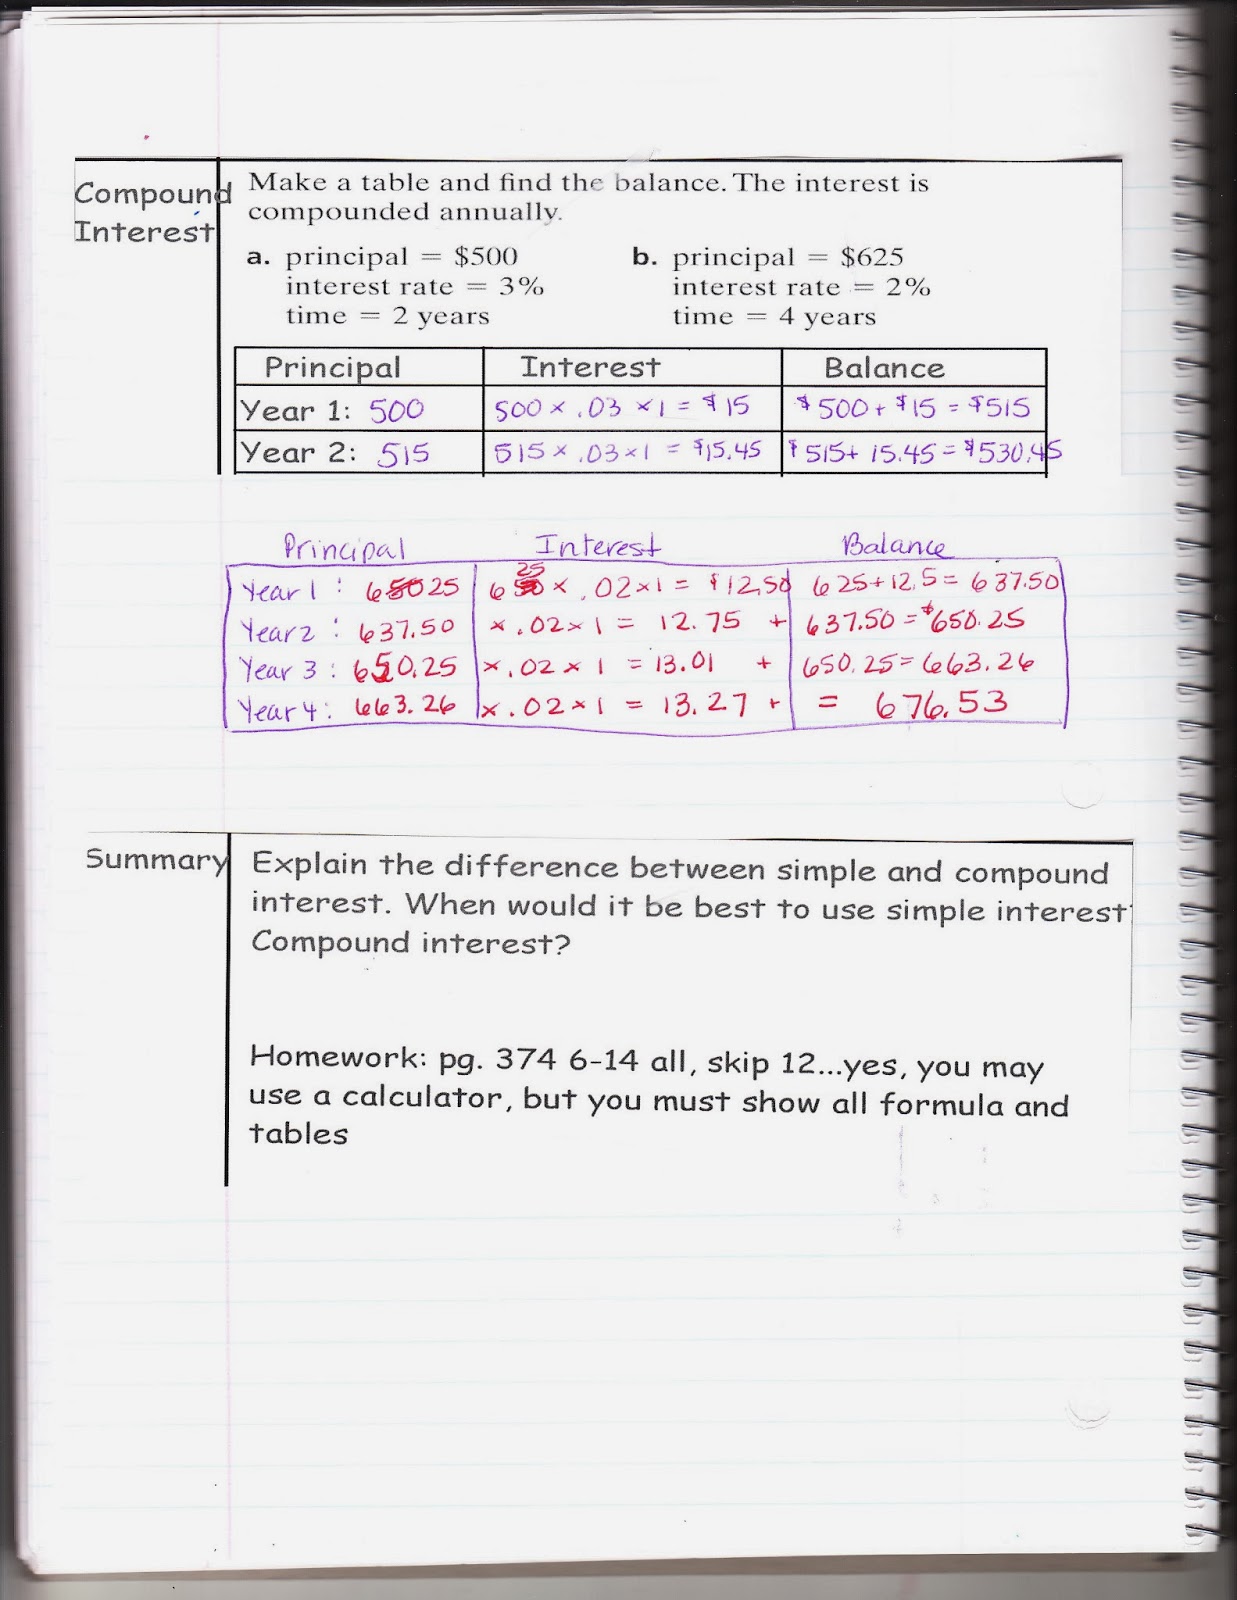 Compound
Interest
Make a table and find the balance. The interest is
compounded annually.
a. principal = $500
interest rate = 3%
time = 2 years
b. principal = $625
interest rate = 2%
time = 4 years
Principal Interest Balance
Year 1: 500 500 × .03 × 1 = $15 $500 + $15 = $515
Year 2: 515 515 × .03 × 1 = $15.45 $515 + 15.45 = $530.45
Principal Interest Balance
Year 1: 625 625 × .02 × 1 = $12.50 625 + 12.5 = 637.50
Year 2: 637.50 × .02 × 1 = 12.75 + 637.50 = $650.25
Year 3: 650.25 × .02 × 1 = 13.01 + 650.25 = 663.26
Year 4: 663.26 × .02 × 1 = 13.27 + = 676.53
Summary
Explain the difference between simple and compound
interest. When would it be best to use simple interest
Compound interest?
Homework: pg. 374 6-14 all, skip 12...yes, you may
use a calculator, but you must show all formula and
tables